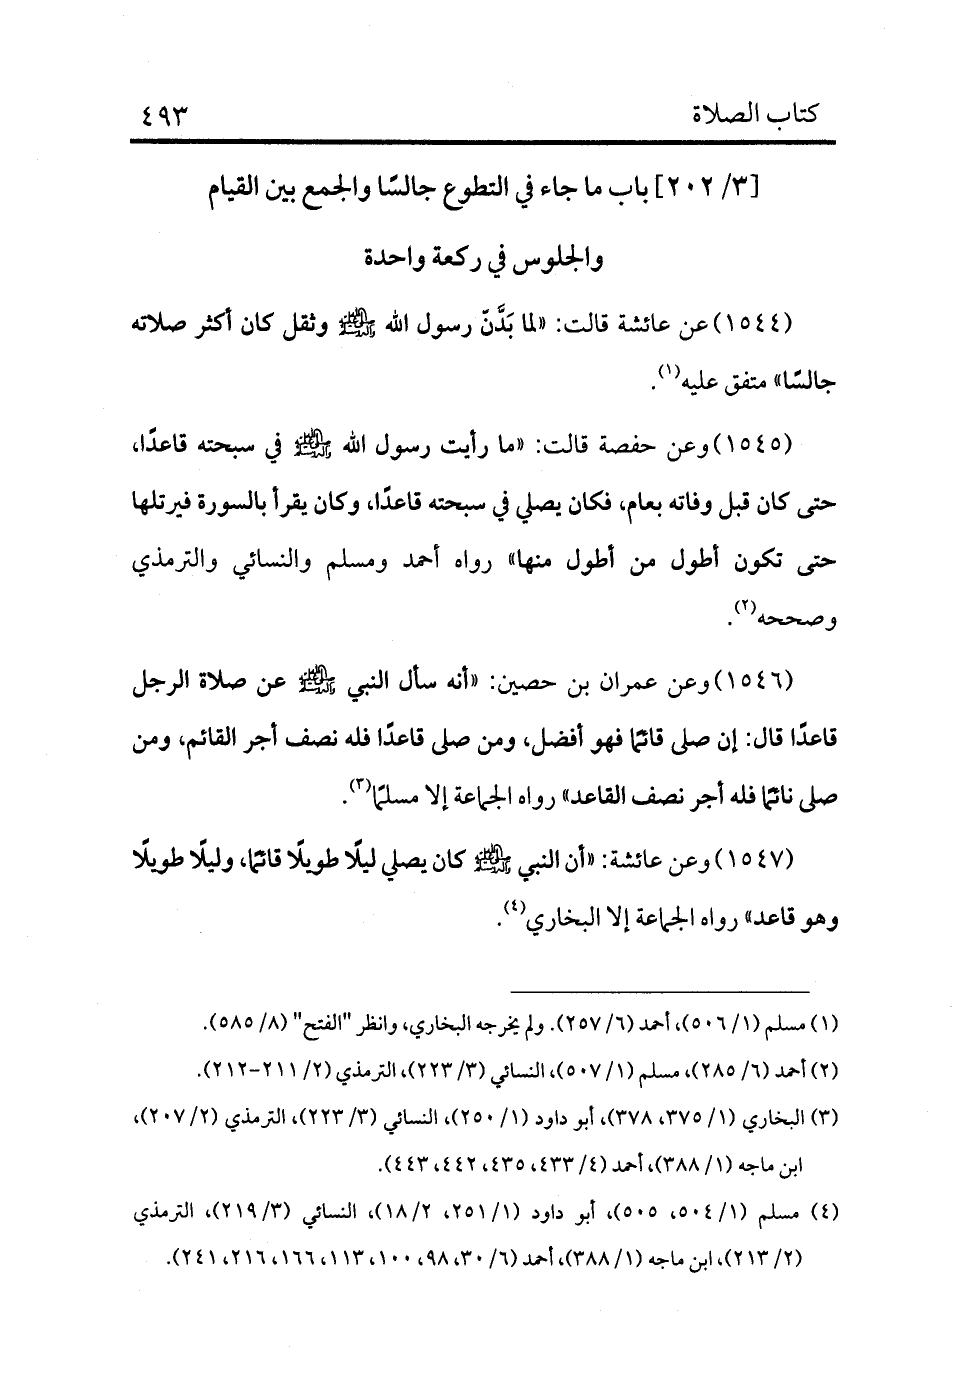 كتاب الصلاة ٤٩٣
[٣/ ٢٠٢] باب ما جاء في التطوع جالسًا والجمع بين القيام
والجلوس في ركعة واحدة
(١٥٤٤) عن عائشة قالت: «لما بَدَّنّ رسول الله ﷺ وثقل كان أكثر صلاته
جالسًا» متفق عليه(١).
(١٥٤٥) وعن حفصة قالت: «ما رأيت رسول الله ﷺ في سبحته قاعدًا،
حتى كان قبل وفاته بعام، فكان يصلي في سبحته قاعدًا، وكان يقرأ بالسورة فيرتلها
حتى تكون أطول من أطول منها» رواه أحمد ومسلم والنسائي والترمذي
وصححه(٢).
(١٥٤٦) وعن عمران بن حصين: «أنه سأل النبي ﷺ عن صلاة الرجل
قاعدًا قال: إن صلى قائمًا فهو أفضل، ومن صلى قاعدًا فله نصف أجر القائم، ومن
صلى نائمًا فله أجر نصف القاعد» رواه الجماعة إلا مسلمًا(٣).
(١٥٤٧) وعن عائشة: «أن النبي ﷺ كان يصلي ليلًا طويلًا قائمًا، وليلًا طويلًا
وهو قاعد» رواه الجماعة إلا البخاري(٤).
(١) مسلم (١/ ٥٠٦)، أحمد (٦/ ٢٥٧). ولم يخرجه البخاري، وانظر "الفتح" (٨/ ٥٨٥).
(٢) أحمد (٦/ ٢٨٥)، مسلم (١/ ٥٠٧)، النسائي (٣/ ٢٢٣)، الترمذي (٢/ ٢١١-٢١٢).
(٣) البخاري (١/ ٣٧٥، ٣٧٨)، أبو داود (١/ ٢٥٠)، النسائي (٣/ ٢٢٣)، الترمذي (٢/ ٢٠٧)،
ابن ماجه (١/ ٣٨٨)، أحمد (٤/ ٤٣٣، ٤٣٥، ٤٤٢، ٤٤٣).
(٤) مسلم (١/ ٥٠٤، ٥٠٥)، أبو داود (١/ ٢٥١، ٢/ ١٨)، النسائي (٣/ ٢١٩)، الترمذي
(٢/ ٢١٣)، ابن ماجه (١/ ٣٨٨)، أحمد (٦/ ٣٠، ٩٨، ١٠٠، ١١٣، ١٦٦، ٢١٦، ٢٤١).